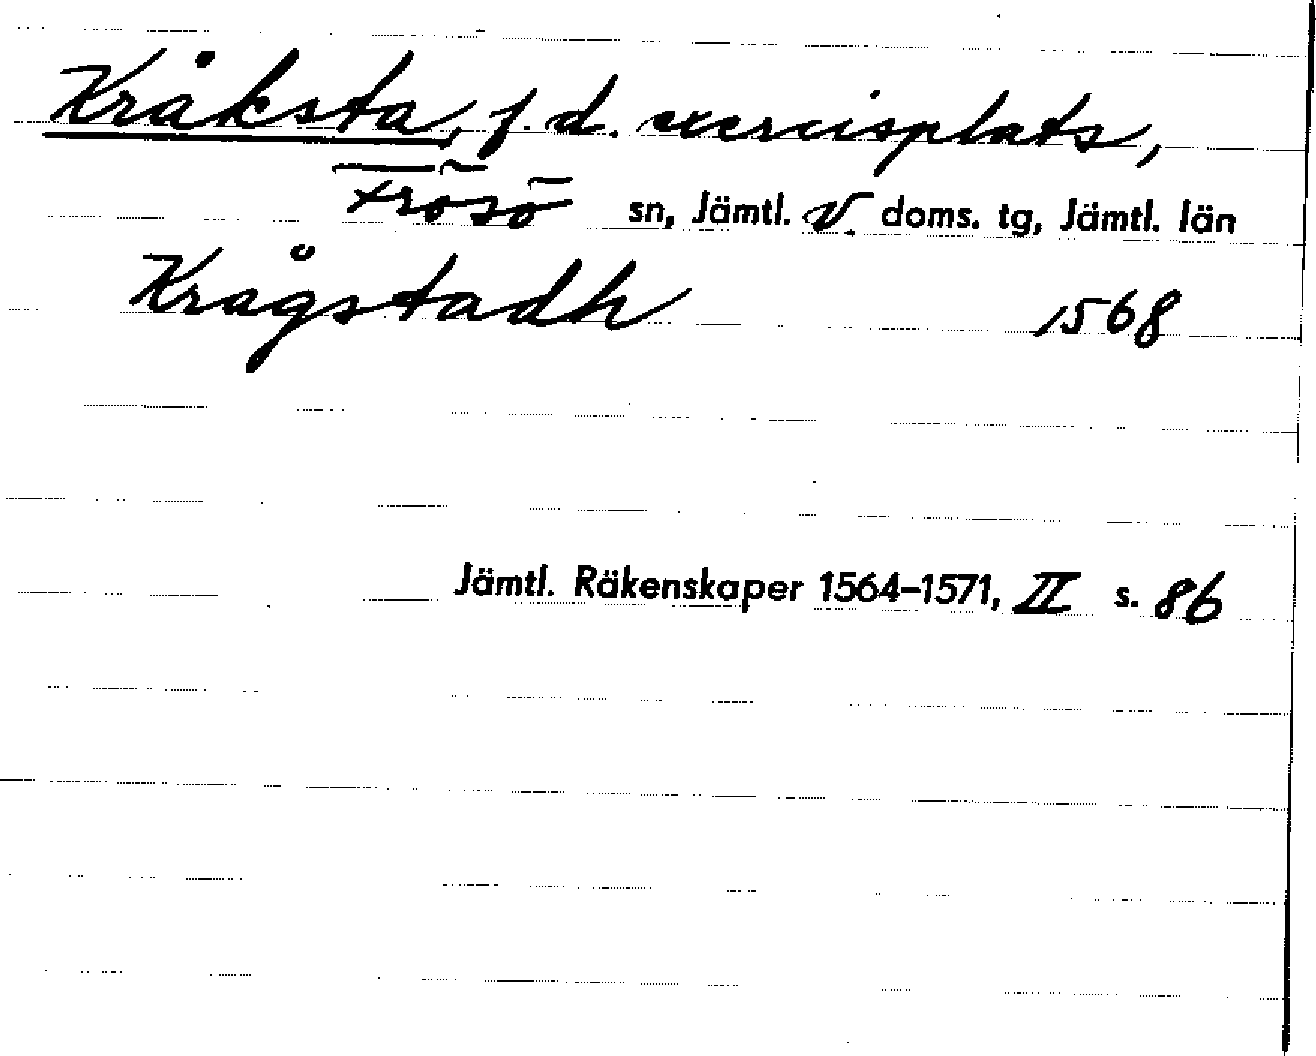 Kråksta, f.d. exercisplats,
Frösö sn, Jämtl. V. doms. tg, Jämtl. län
Krågstadh 1568
Jämtl. Räkenskaper 1564–1571, II s. 86